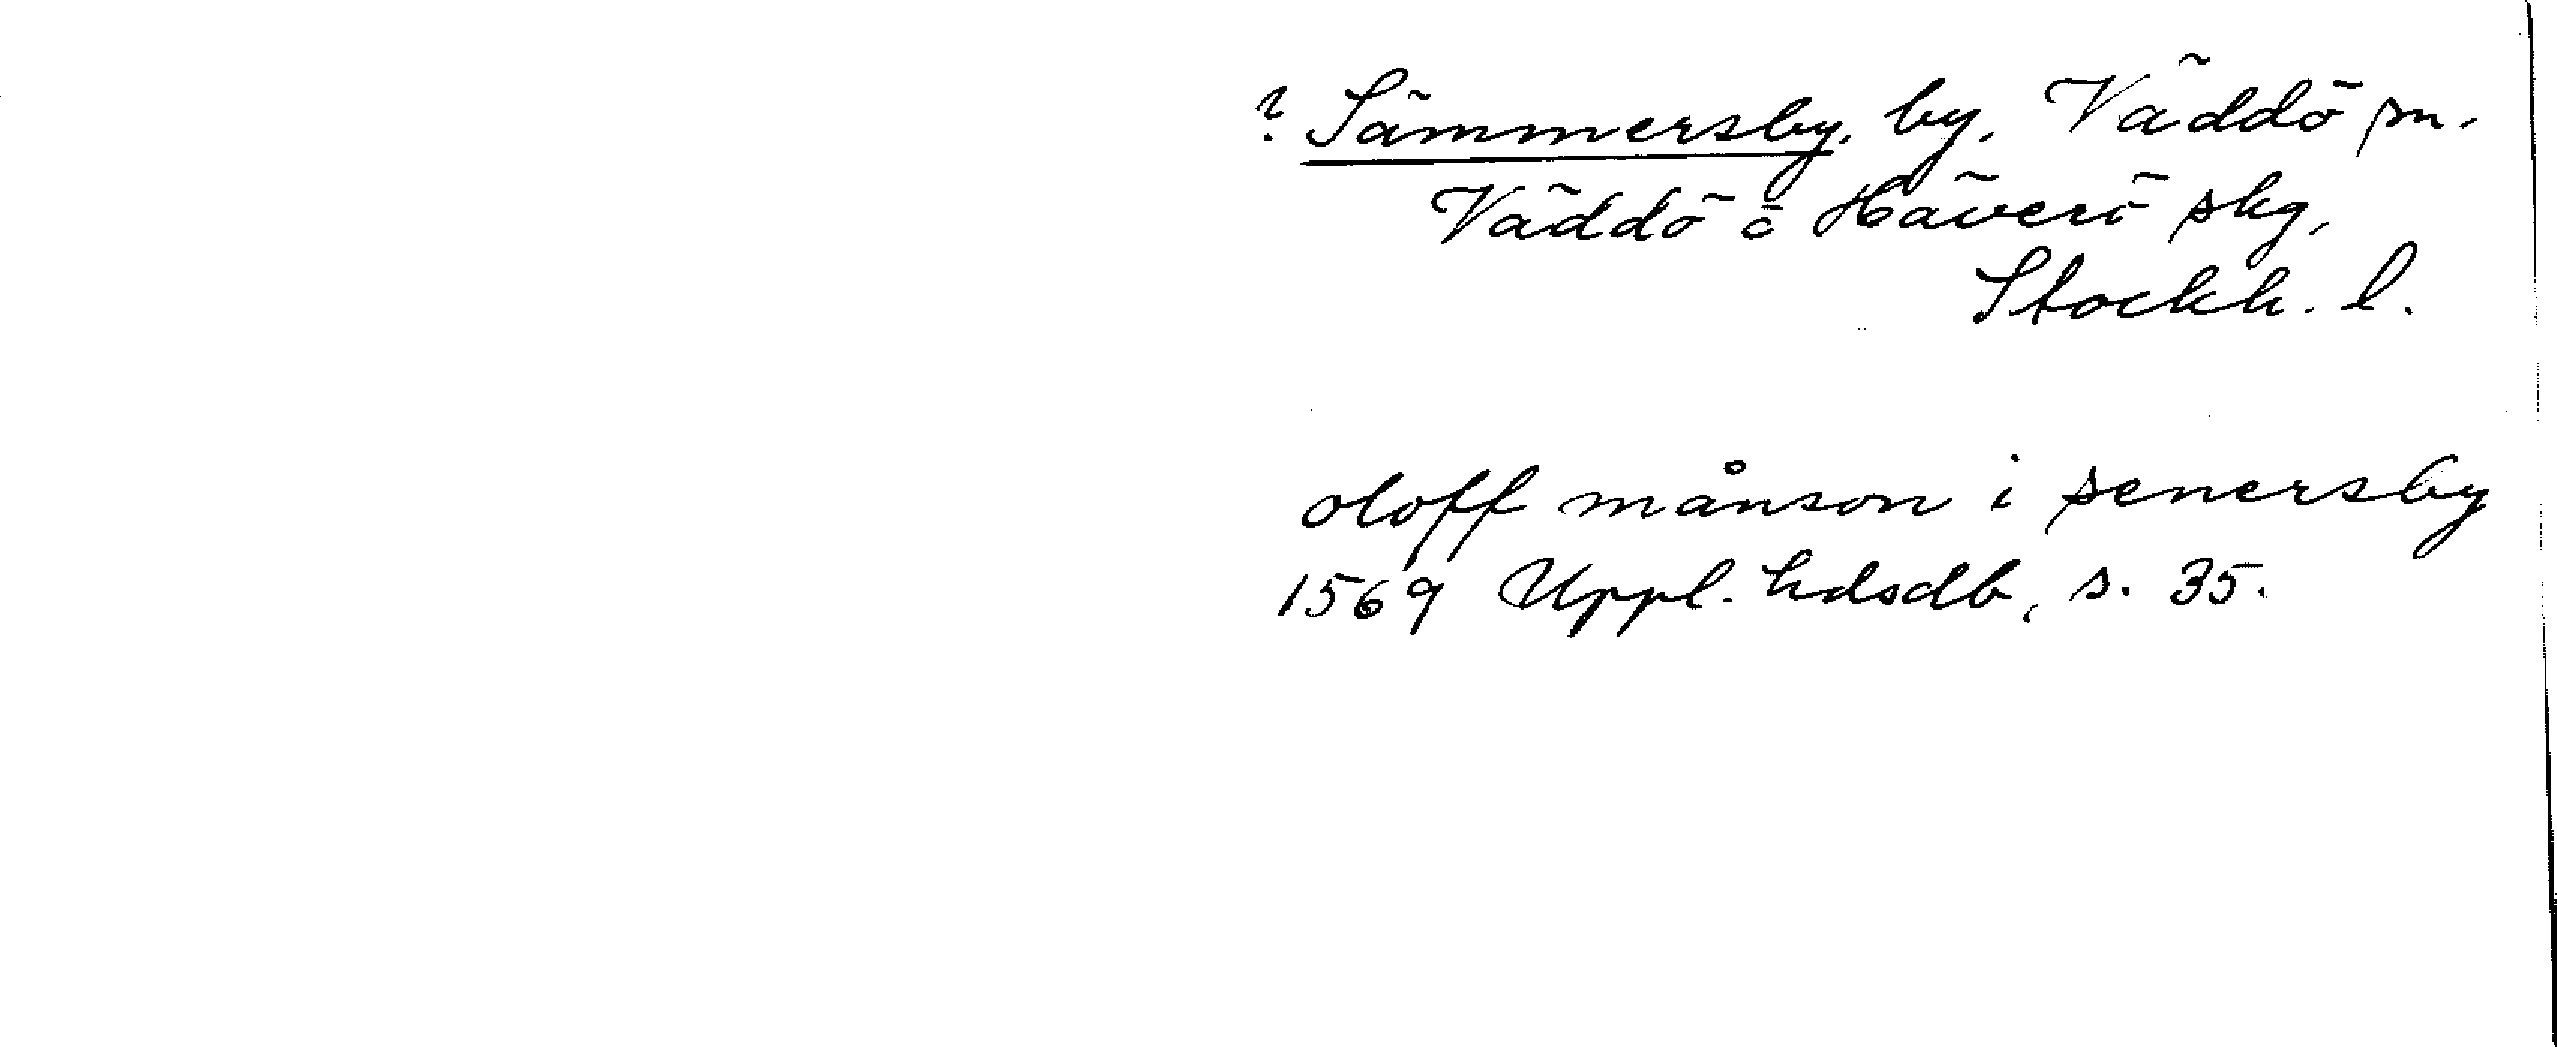 ? Sämmersby, by, Väddö sn.
Väddö o Häverö skg,
Stockh. l.
oloff månson i senersby
1569 Uppl. hdsdb, s. 35.